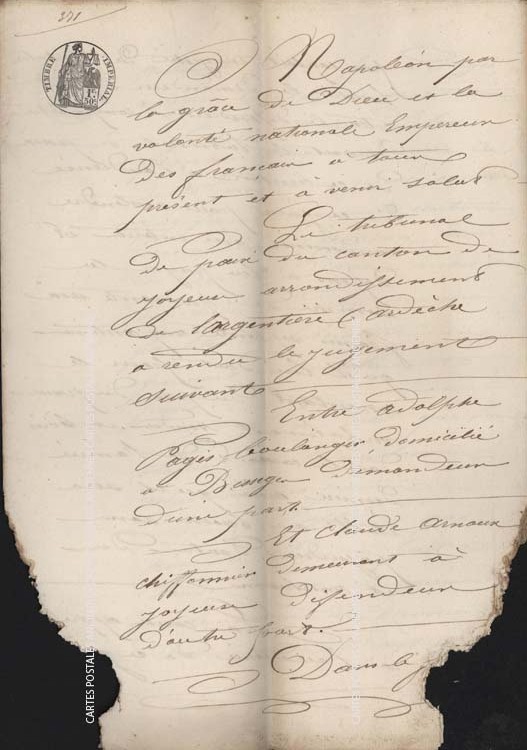 371
TIMBRE IMPERIAL
1F.
50C.
Napoléon par
la grâce de Dieu et la
volonté nationale Empereur
Des francais a tous
présent et à venir salut
Le tribunal
De paix du canton de
joyeux arrondissement
de largentière (ardèche
a rendu le jugement
suivant
Entre adolphe
Pagès boulanger domicilié
a Bessges demandeur
D'une part
Et claude arnoux
chiffonnier demeurant à
joyeux défendeur
d'autre part.
Dans le
CARTES POSTALES